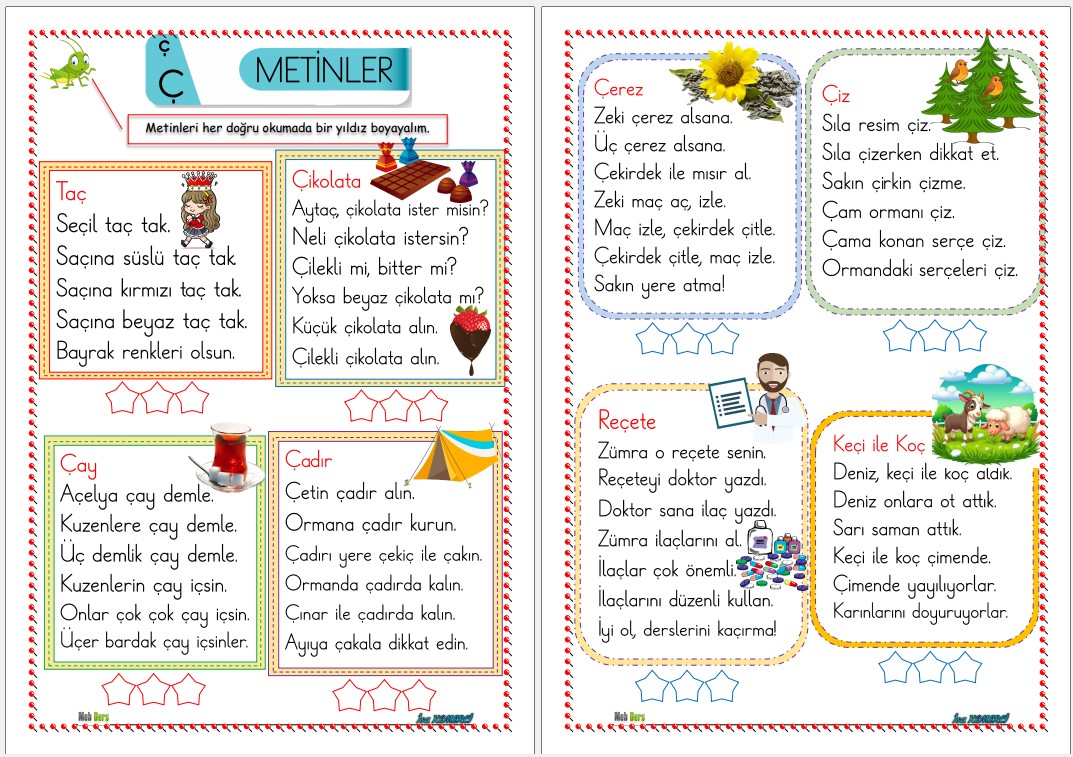 ç
Ç
METİNLER
Metinleri her doğru okumada bir yıldız boyayalım.
Taç
Seçil taç tak.
Saçına süslü taç tak
Saçına kırmızı taç tak.
Saçına beyaz taç tak.
Bayrak renkleri olsun.
Çikolata
Aytaç, çikolata ister misin?
Neli çikolata istersin?
Çilekli mi, bitter mi?
Yoksa beyaz çikolata mı?
Küçük çikolata alın.
Çilekli çikolata alın.
Çay
Açelya çay demle.
Kuzenlere çay demle.
Üç demlik çay demle.
Kuzenlerin çay içsin.
Onlar çok çok çay içsin.
Üçer bardak çay içsinler.
Çadır
Çetin çadır alın.
Ormana çadır kurun.
Çadırı yere çekiç ile çakın.
Ormanda çadırda kalın.
Çınar ile çadırda kalın.
Ayıya çakala dikkat edin.
Meb Ders
Çerez
Zeki çerez alsana.
Üç çerez alsana.
Çekirdek ile mısır al.
Zeki maç aç, izle.
Maç izle, çekirdek çitle.
Çekirdek çitle, maç izle.
Sakın yere atma!
Çiz
Sıla resim çiz.
Sıla çizerken dikkat et.
Sakın çirkin çizme.
Çam ormanı çiz.
Çama konan serçe çiz.
Ormandaki serçeleri çiz.
Reçete
Zümra o reçete senin.
Reçeteyi doktor yazdı.
Doktor sana ilaç yazdı.
Zümra ilaçlarını al.
İlaçlar çok önemli.
İlaçlarını düzenli kullan.
İyi ol, derslerini kaçırma!
Keçi ile Koç
Deniz, keçi ile koç aldık.
Deniz onlara ot attık.
Sarı saman attık.
Keçi ile koç çimende.
Çimende yayılıyorlar.
Karınlarını doyuruyorlar.
Meb Ders